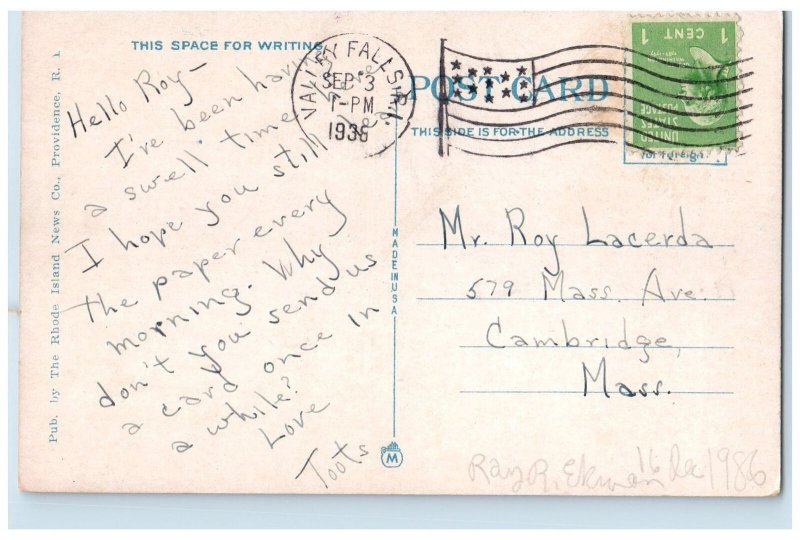 THIS SPACE FOR WRITING
Hello Roy—
I've been having
a swell time
I hope you still
the paper every
morning. Why
don't you send us
a card once in
a while?
Love
Toots
Pub. by The Rhode Island News Co., Providence, R. I.
MADE IN USA
M
VALLEY FALLS R.I.
SEP 3
1-PM
POST CARD
THIS SIDE IS FOR THE ADDRESS
1 CENT 1
UNITED
STATES
POSTAGE
Mr. Roy Lacerda
579 Mass. Ave.
Cambridge,
Mass.
Ray R. Ekman 16 Dec 1986